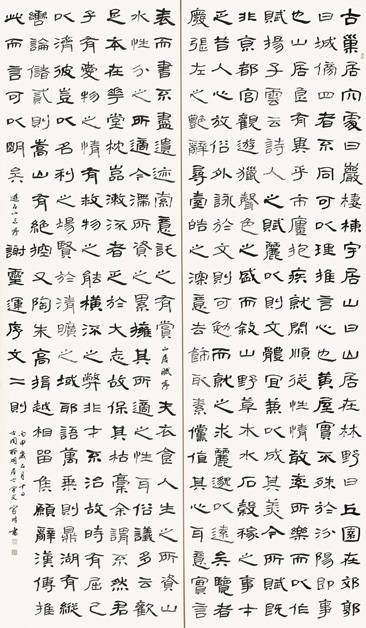 古巢居穴處曰巖棲棟宇居山曰山居在林野曰丘園在郊郭
曰城傍四者不同可以理推言心也黃屋實不殊於汾陽即事
也山居良有異乎市廛抱疾就閑順從性情敢率所樂而以作
賦揚子雲云詩人之賦麗以則文體宜兼以成其美今所賦既
非京都宮觀遊獵聲色之盛而敘山野草木水石穀稼之事才
乏昔人心放俗外詠於文則可勉而就之求麗邈以遠矣覽者
廢張左之艷辭尋臺皓之深意去飾取素儻值其心耳意實言
表而書不盡遺迹索意託之有賞 山居賦序 夫衣食人生之所資山
水性分之所適今滯所資之累擁其所適之性耳俗議多云歡
足本在華堂枕巖漱流者乏於大志故保其枯槁余謂不然君
子有愛物之情有救物之能橫流之弊非才不治故時有屈己
以濟彼豈以名利之場賢於清曠之域耶語萬乘則鼎湖有縱
轡論儲貳則嵩山有絕控又陶朱高揖越相留侯願辭漢傅推
此而言可以明矣 遊名山志序 謝靈運序文二則
丙申歲五月十日